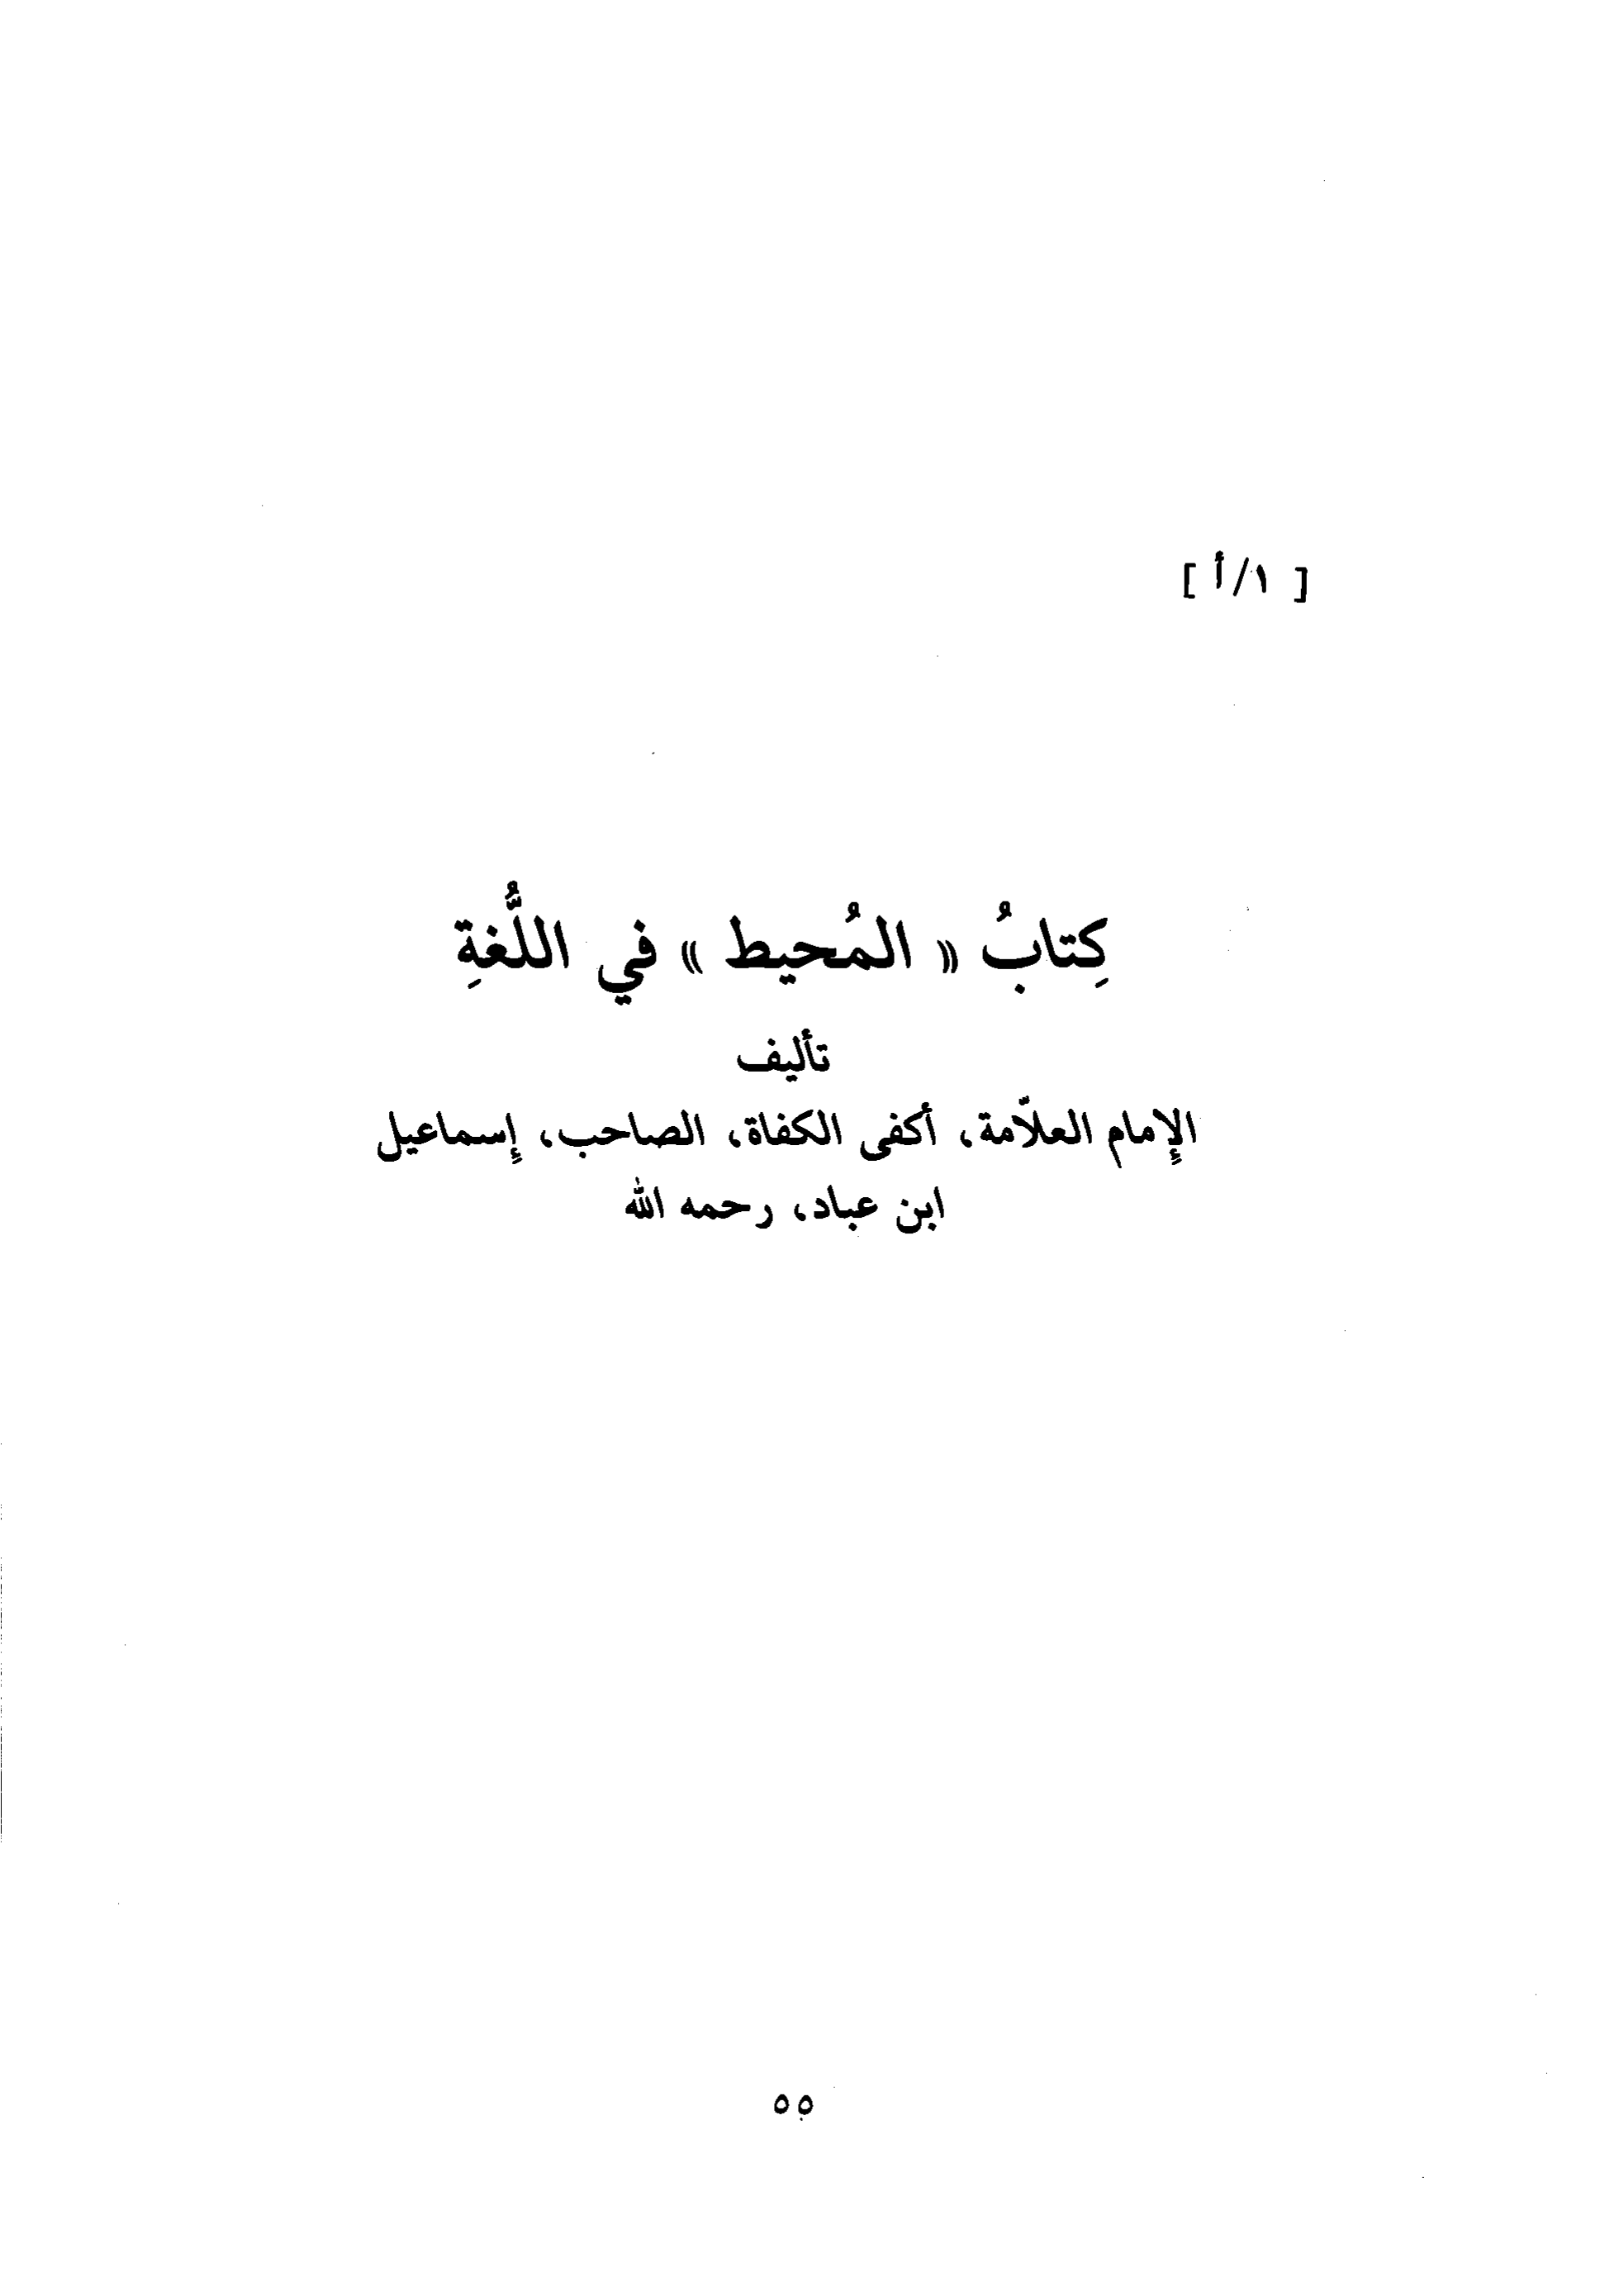 [ ١/أ ]
كِتابُ « المُحيط » في اللُّغةِ
تأليف
الإِمام العلاّمة، أكفى الكفاة، الصاحب، إِسماعيل
ابن عباد، رحمه الله
٥٥